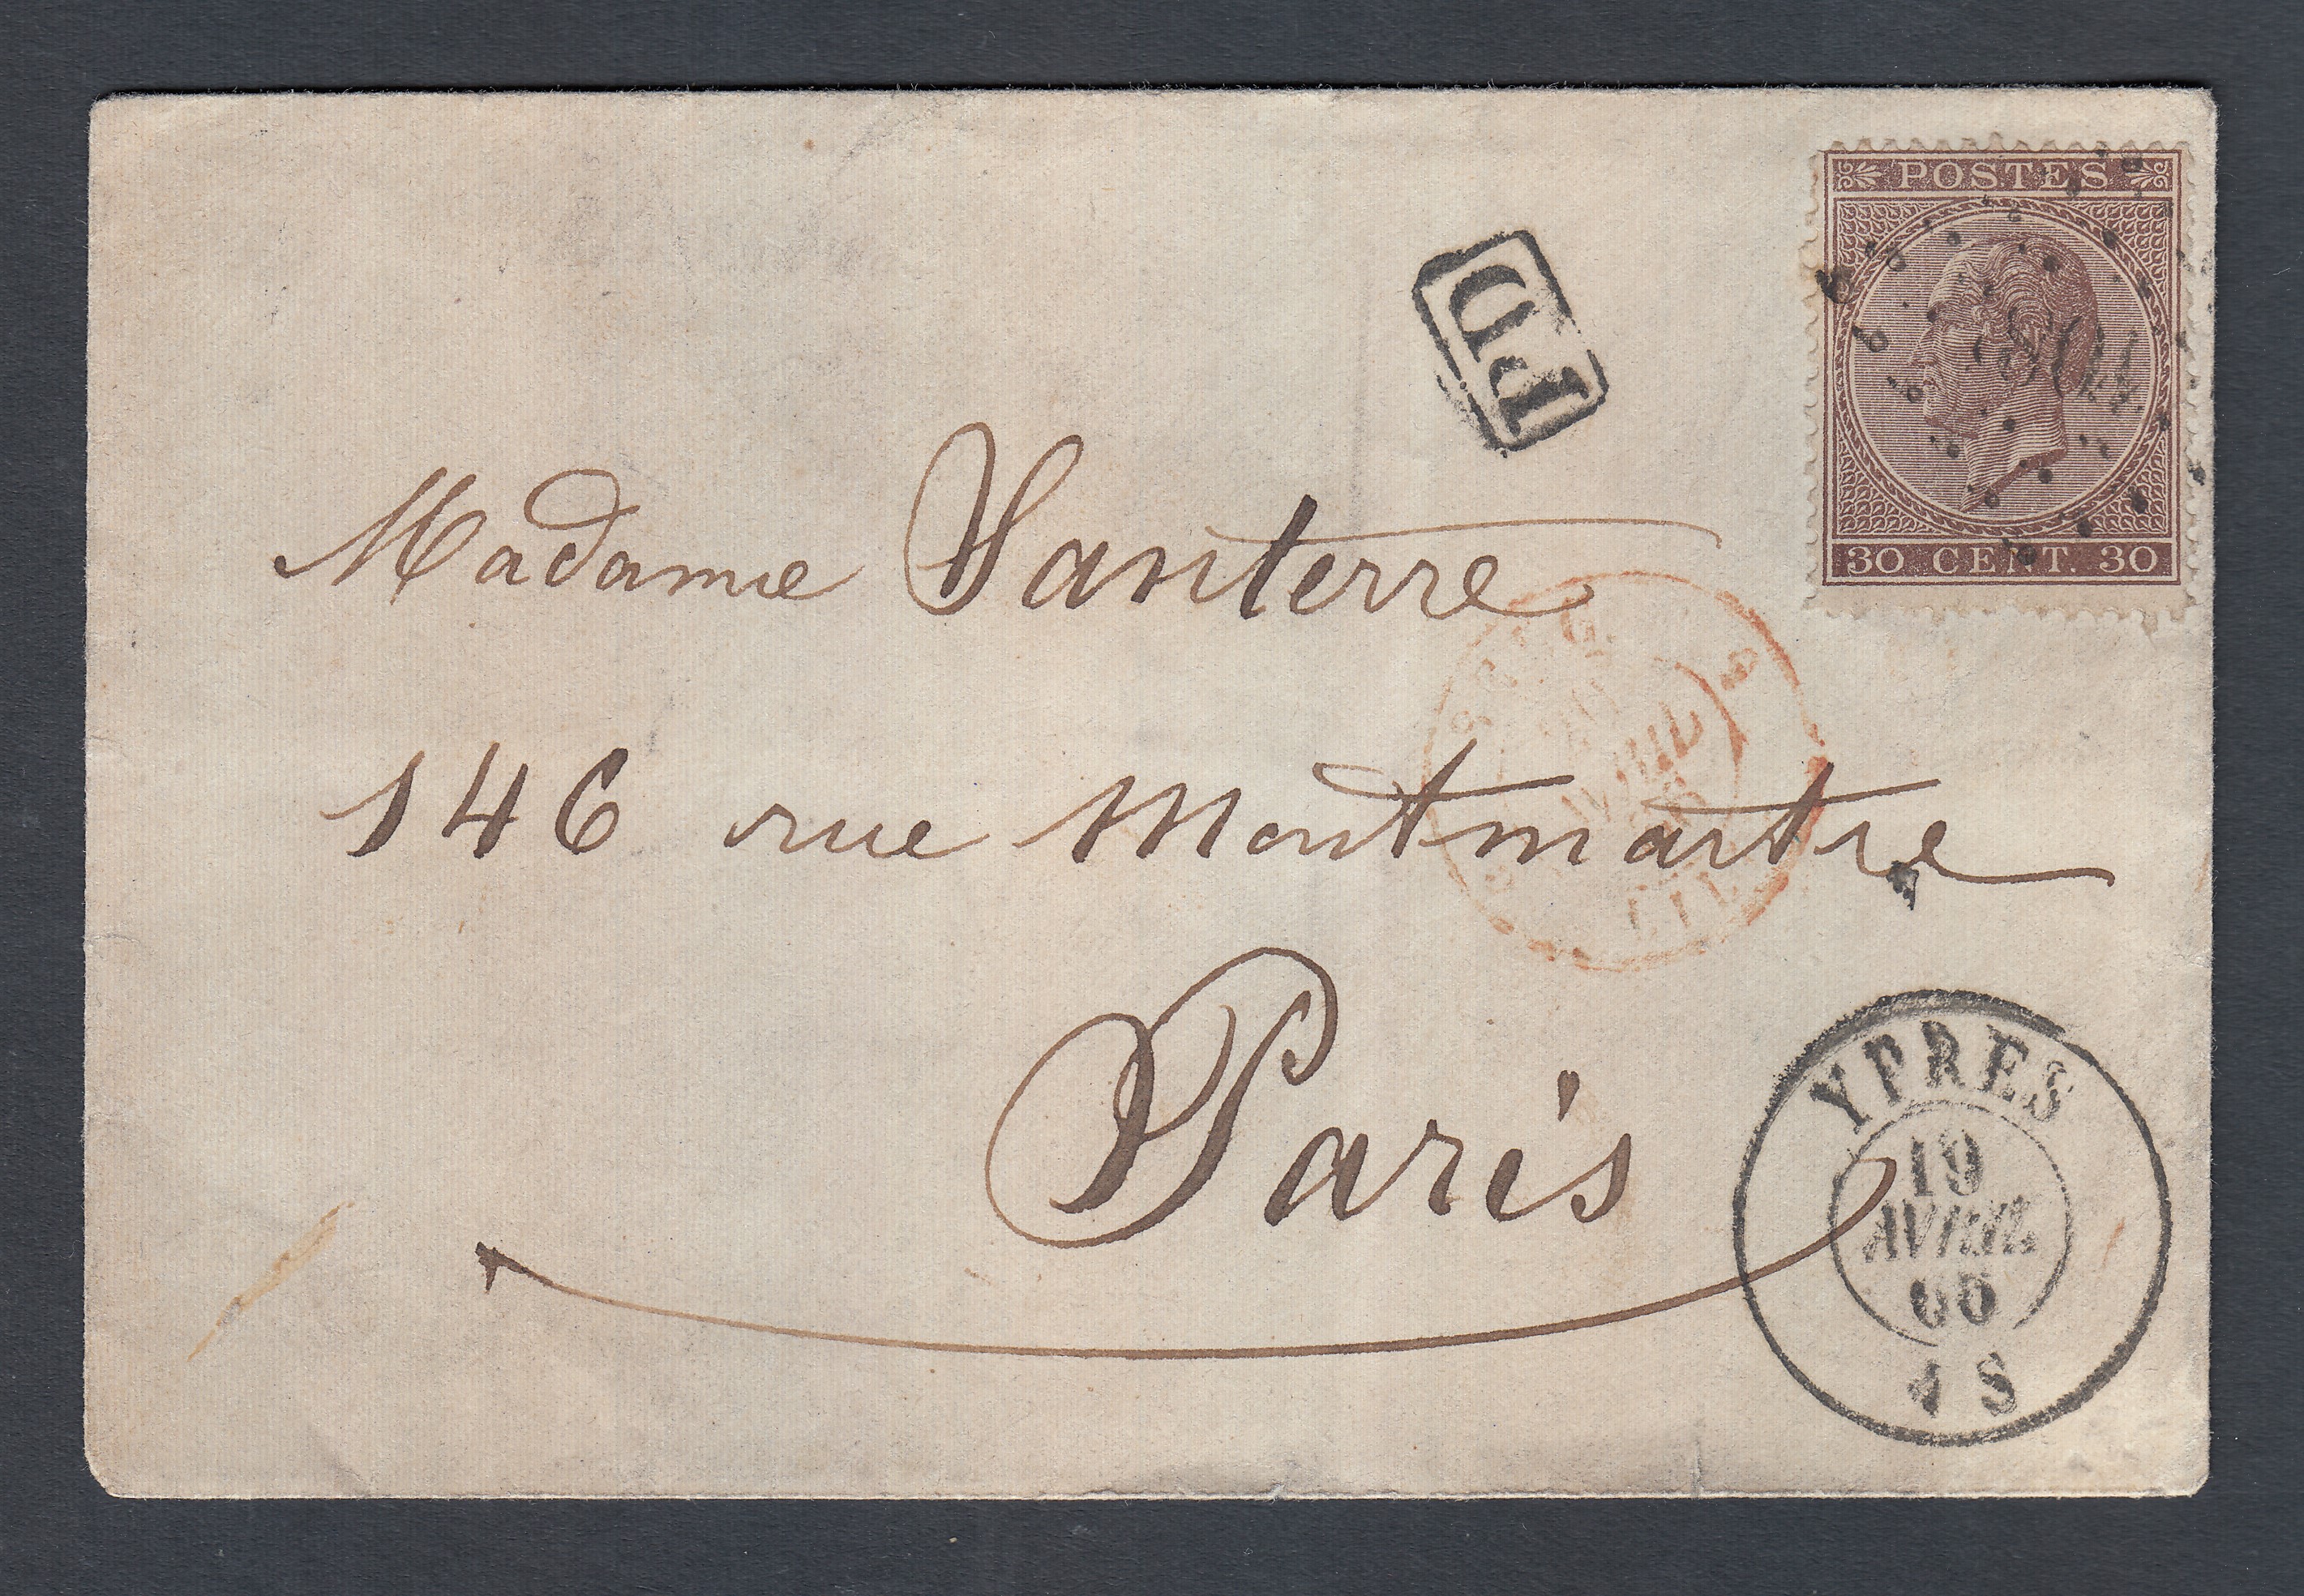 POSTES
30 CENT. 30
PD
Madame Santerre
146 rue Montmartre
Paris
AVRIL
YPRES
19
AVRIL
66
4 S